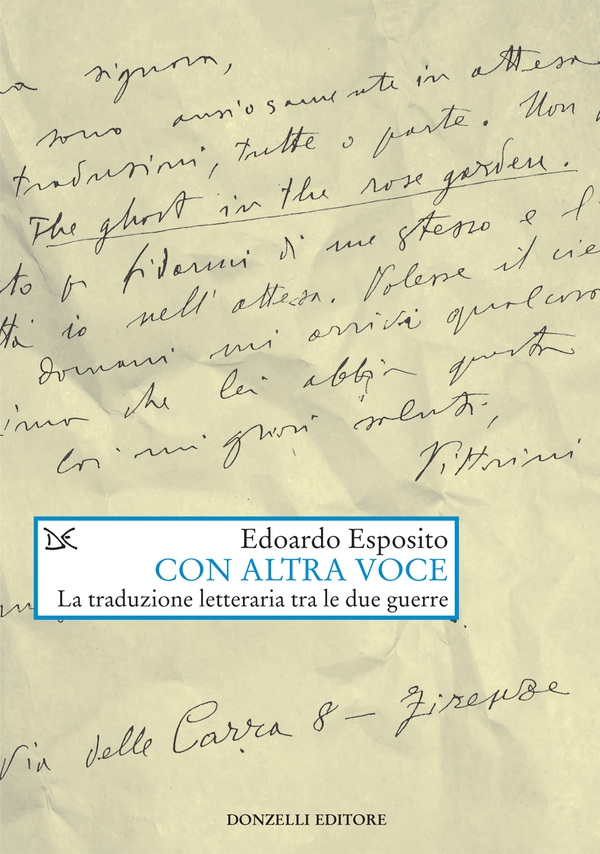 a signora,
sono ansiosamente in attesa
traduzioni, tutte o parte. Non
The ghost in the rose garden.
to fidarmi di me stesso e l'
tà io nell'attesa. Volesse il cie
domani mi arrivi qualcosa
ima che lei abbia questa
coi miei saluti,
Vittorini
DE
Edoardo Esposito
CON ALTRA VOCE
La traduzione letteraria tra le due guerre
Via delle Carra 8 – Firenze
DONZELLI EDITORE